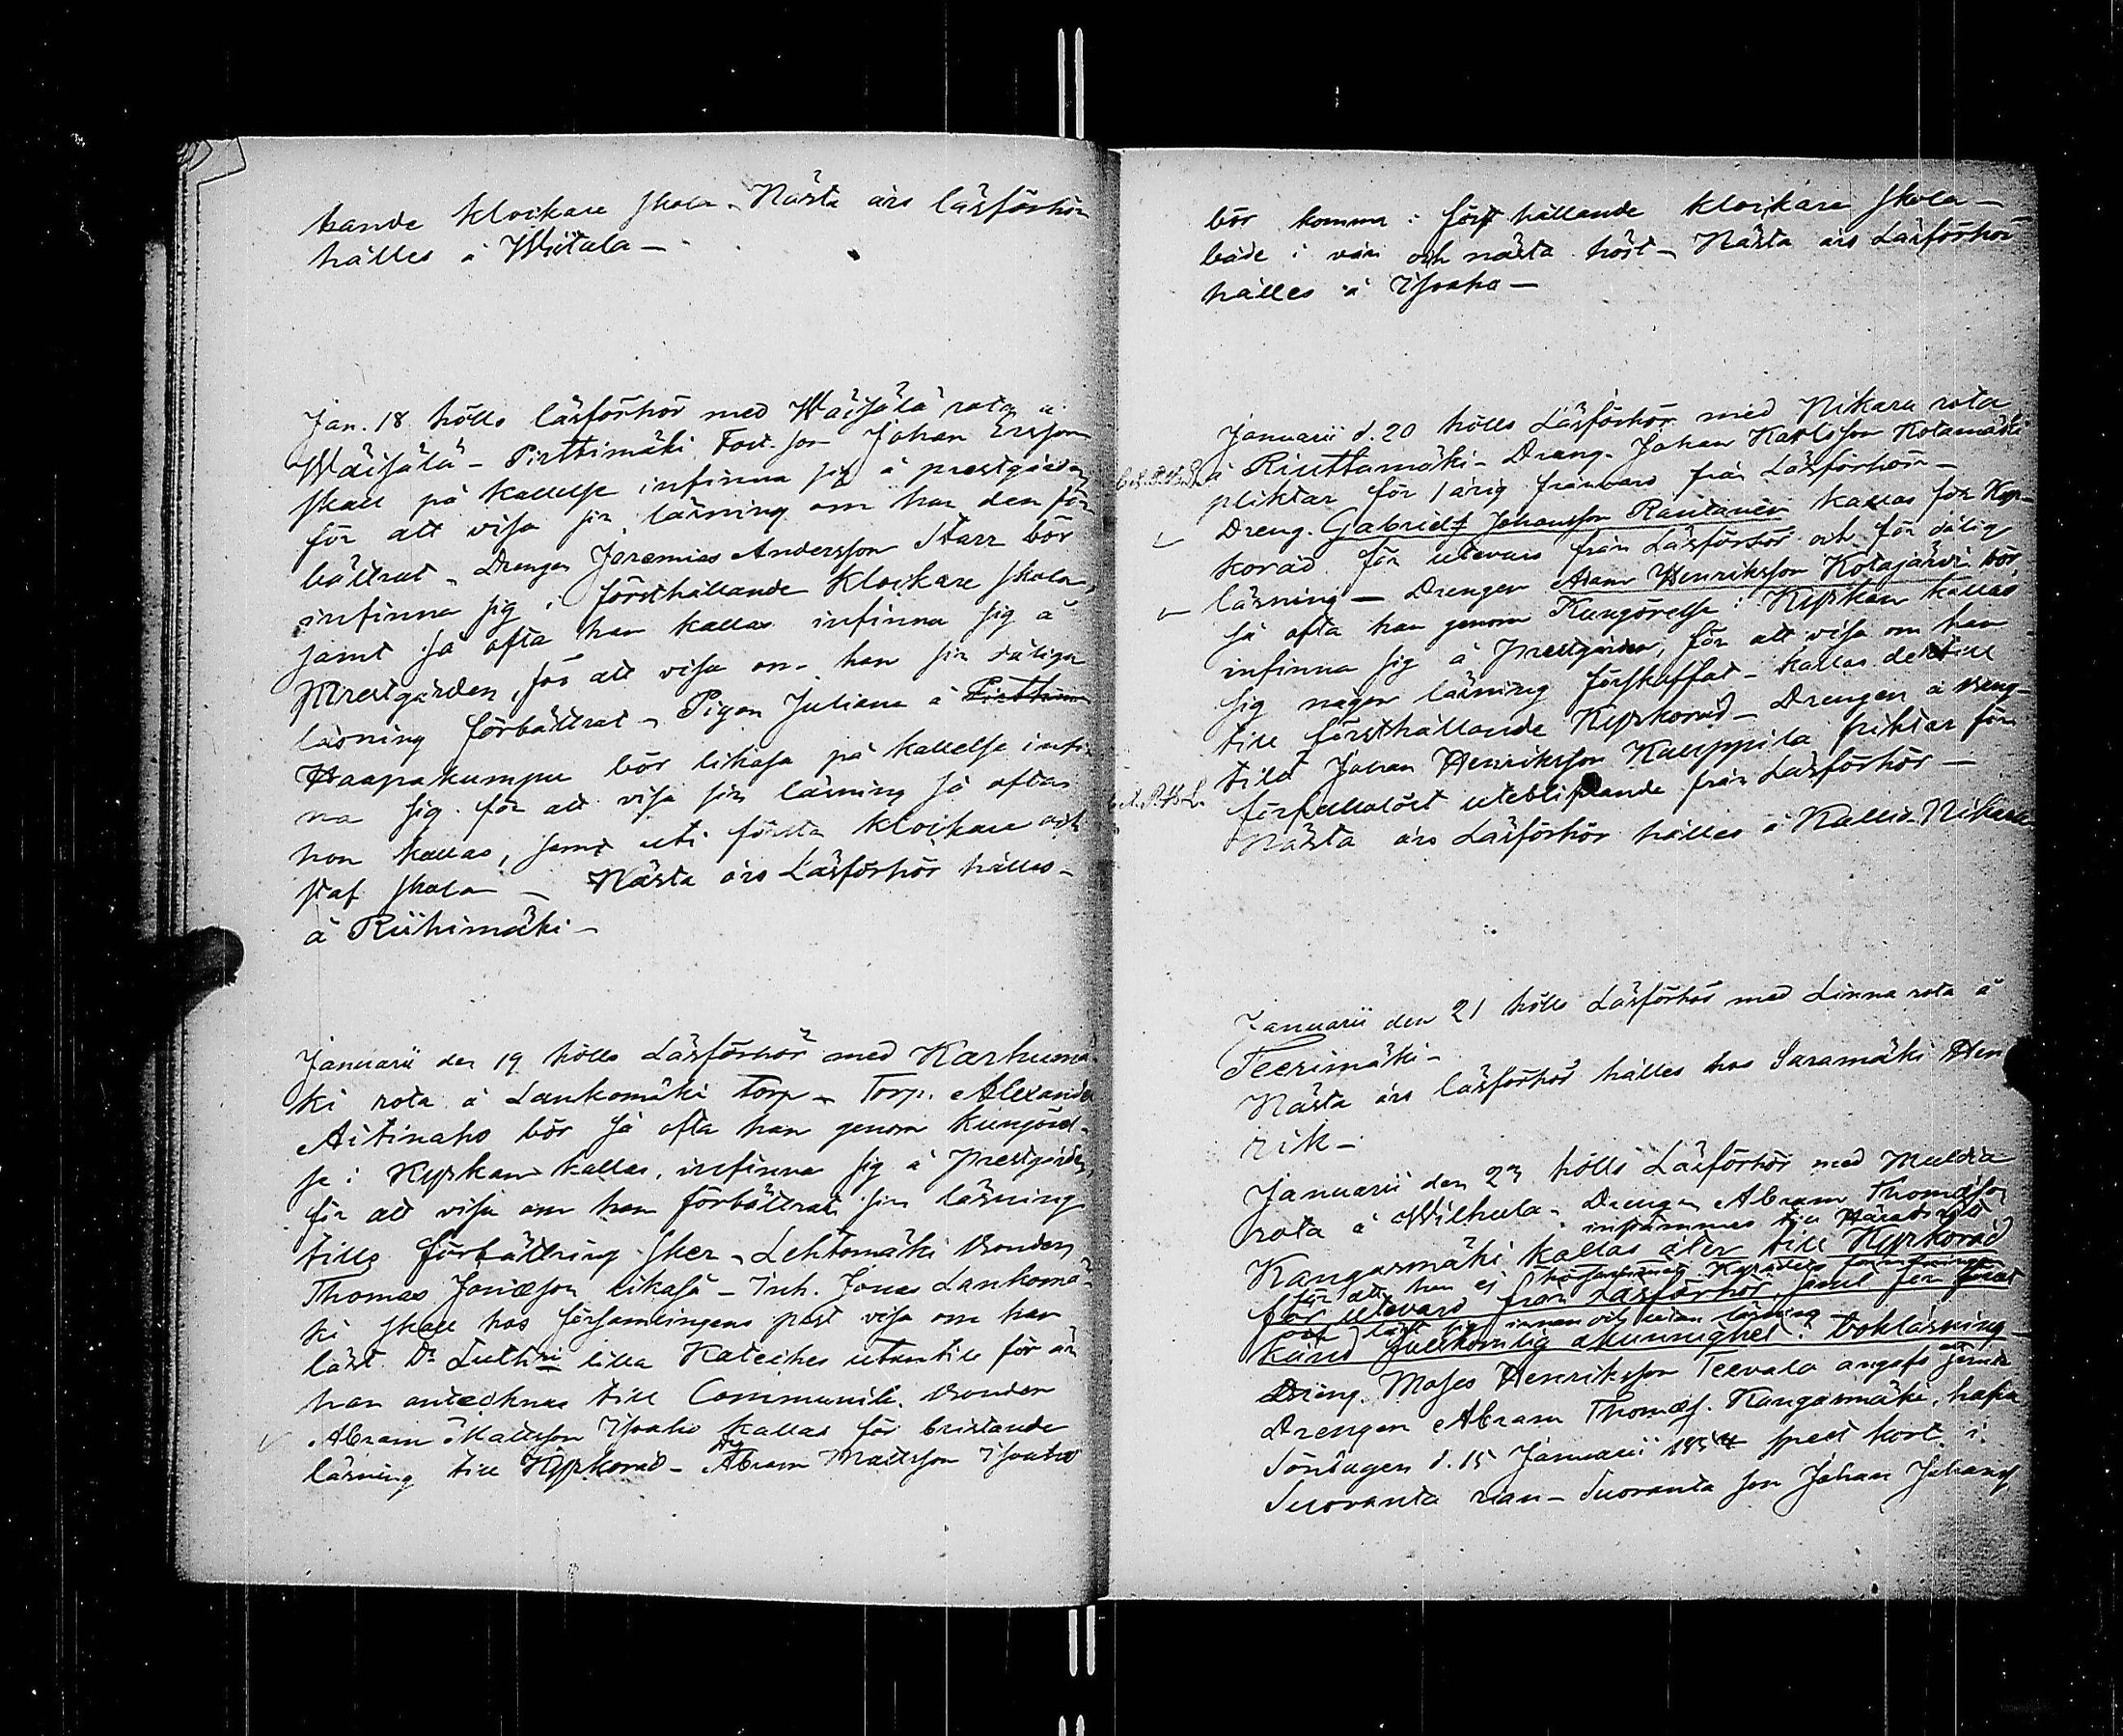 kande klockare skola - Nästa års läsförhör
hålles å Wiitala -
Jan. 18 hölls läsförhör med Wäisälä rota å
Wäisälä - Pirttimäki Tor. son Johan Ersson
skall på kallelse infinna sig å prestgården
för att visa sin läsning om han den för
bättrat - Drengen Jeremias Andersson Starr bör
infinna sig i försthållande Klockare skola,
samt så ofta han kallas infinna sig å
Prestgården, för att visa om han sin dåliga
läsning förbättrat - Pigan Juliana å
Haapakumpu bör likaså på kallelse infin
na sig för att visa sin läsning så ofta
hon kallas, samt uti första klockare och
staf skola - Nästa års Läsförhör hålles -
å Riihimäki -
Januarii den 19 hölls Läsförhör med Karhumä
ki rota å Lankomäki torp - Torp. Alexander
Aitinaho bör så ofta han genom kungörel-
se i Kyrkan kallas, infinna sig å Prestgården,
för att visa om han förbättrat sin läsning
tills förbättring sker - Lehtomäki Bonden
Thomas Jonæson likaså - Inh. Jonas Lankomä
ki skall hos församlingens past visa om han
läst Dr Lutheri lilla Kateches utantill för än
han antecknas till Communik. Bonden
Abram Mattsson Isoaho kallas för bristande
läsning till Kyrkoråd - Abram Mattsson Isoaho
bör komma i först hållande klockare skola -
både i vår och nästa höst - Nästa års Läsförhör
hålles å Isoaho -
Januarii d. 20 hölls Läsförhör med Nikara rota
å Riuttamäki - Dreng. Johan Karlsson Kotamäki
pliktar för 1 årig frånvaro från Läsförhör -
Dreng. Gabriel Johansson Rautanen kallas för Kyr-
koråd för utevaro från Läsförhör och för dålig
läsning - Drengen Adam Henriksson Kotajärvi bör
så ofta han genom Kungörelse i Kyrkan kallas
infinna sig å Prestgården, för att visa om han
sig någon läsning förskaffat - kallas dertill
till försthållande Kyrkoråd - Drengen å
Johan Henriksson Kauppila pliktar för
förfallolöst utebliffande från Läsförhör -
Nästa års Läsförhör hålles å Kallio-Nikara
Januarii den 21 hölls Läsförhör med Linna rota å
Teerimäki -
Nästa års läsförhör hålles hos Saramäki Hen
rik -
Januarii den 23 hölls Läsförhör med Multia
rota å Wilhula - Drengen Abram Thomasson
instämmas till Häradsrätt
Kangasmäki kallas åter till Kyrkoråd
för att han ej Kyrkoråds
för utevaro från Läsförhör, samt för
läst sig innan och utan läsning
känd fullkomlig okunnighet i bokläsning -
Dreng. Moses Henriksson Teevala angafs
Drengen Abram Thomæs. Kangasmäki, hafva
Söndagen d. 15 Januarii 1854 spelt kort i
Suovanta - Suovanta son Johan Johans